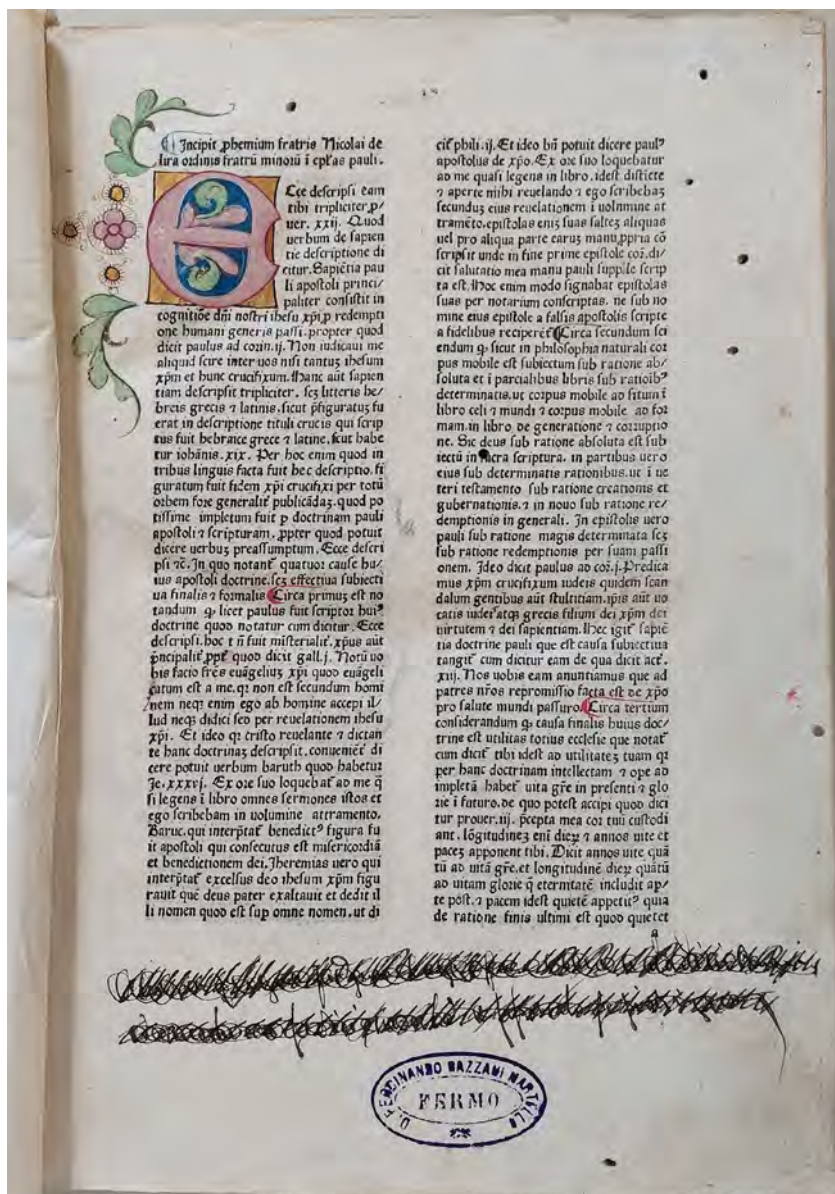 Incipit ꝓhemium fratris Nicolai de
lira ordinis fratrū minorū ī ep̄las pauli.
Ecce descripsi eam
tibi tripliciter ꝓ/
uer. xxij. Quod
uerbum de sapien
tie descriptione di
citur. Sapiētia pau
li apostoli princi/
paliter consistit in
cognitiōe dn̄i nostri ihesu xp̄i ꝓ redempti
one humani generis passi. propter quod
dicit paulus ad corin. ij. Non iudicaui me
aliquid scire inter uos nisi tantuʒ ihesum
xp̄m et hunc crucifixum. Hanc aūt sapien
tiam descripsit tripliciter. scʒ litteris he/
breis grecis ⁊ latinis. sicut p̄figuratuʒ fu
erat in descriptione tituli crucis qui scrip
tus fuit hebraice grece ⁊ latine. sicut habe
tur iohānis. xix. Per hoc enim quod in
tribus linguis facta fuit hec descriptio. fi
guratum fuit fidem xp̄i crucifixi per totū
orbem fore generalit̄ publicādaʒ. quod po
tissime impletum fuit p doctrinam pauli
apostoli ⁊ scripturam. ꝓpter quod potuit
dicere uerbuʒ preassumptum. Ecce descri
psi ⁊c̄. In quo notant᷑ quatuor cause hu/
ius apostoli doctrine. scʒ effectiua subiecti
ua finalis ⁊ formalis Circa primuʒ est no
tandum ꝙ licet paulus fuit scriptor huiꝰ
doctrine quod notatur cum dicitur. Ecce
descripsi. hoc t n̄ fuit misterialit̄. xp̄us aūt
p̄ncipalit̄. ꝓpt̄ quod dicit gall. j. Notū uo
bis facio fr̄es euāgeliuʒ xp̄i quod euāgeli
catum est a me. qꝛ non est secundum homi
nem neqʒ enim ego ab homine accepi il/
lud neqʒ didici sed per reuelationem ihesu
xp̄i. Et ideo qꝛ cristo reuelante ⁊ dictan
te hanc doctrinaʒ descripsit. conueniēt̄ di
cere potuit uerbum baruth quod habetur
Je. xxxvj. Ex ore suo loquebat᷑ ad me q̄
si legens ī libro omnes sermones istos et
ego scribebam in uolumine attramento.
Baruc. qui interp̄tat᷑ benedictꝰ figura fu
it apostoli qui consecutus est misericordiā
et benedictionem dei. Jheremias uero qui
interp̄tat᷑ excelsus deo ihesum xp̄m figu
rauit quē deus pater exaltauit et dedit il
li nomen quod est sup omne nomen. ut di
cit᷑ phili. ij. Et ideo bn̄ potuit dicere paulꝰ
apostolus de xp̄o. Ex ore suo loquebatur
ad me quasi legens in libro. idest disticte
⁊ aperte mihi reuelando ⁊ ego scribebaʒ
secunduʒ eius reuelationem ī uolumine at
tramēto. epistolas eniʒ suas salteʒ aliquas
uel pro aliqua parte earuʒ manu ꝓpria cō
scripsit unde in fine prime epistole cor. di/
cit salutatio mea manu pauli supple scrip
ta est. Hoc enim modo signabat epistolas
suas per notarium conscriptas. ne sub no
mine eius epistole a falsis apostolis scripte
a fidelibus reciperēt᷑ Circa secundum sci
endum ꝙ sicut in philosophia naturali cor
pus mobile est subiectum sub ratione ab/
soluta et ī parcialibus libris sub ratioībꝰ
determinatis. ut corpus mobile ad situm ī
libro celi ⁊ mundi ⁊ corpus mobile ad for
mam. in libro de generatione ⁊ corruptio
ne. Sic deus sub ratione absoluta est sub
iectū in sacra scriptura. in partibus uero
eius sub determinatis rationibus. ut ī ue
teri testamento sub ratione creationis et
gubernationis. ⁊ in nouo sub ratione re/
demptionis in generali. In epistolis uero
pauli sub ratione magis determinata scʒ
sub ratione redemptionis per suam passi
onem. Ideo dicit paulus ad cor. j. Predica
mus xp̄m crucifixum iudeis quidem scan
dalum gentibus aūt stultitiam. ip̄is aūt uo
catis iudeis atqʒ grecis filium dei xp̄m dei
uirtutem ⁊ dei sapientiam. Hec igit᷑ sapiē
tia doctrine pauli que est causa subiectiua
tangit᷑ cum dicitur eam de qua dicit act̄.
xiij. Nos uobis eam anuntiamus que ad
patres nr̄os repromissio facta est de xp̄o
pro salute mundi passuro. Circa tertium
considerandum ꝙ causa finalis huius doc/
trine est utilitas totius ecclesie que notat᷑
cum dicit᷑ tibi idest ad utilitateʒ tuam qꝛ
per hanc doctrinam intellectam ⁊ ope ad
impletā habet᷑ uita gr̄e in presenti ⁊ glo
rie ī futuro. de quo potest accipi quod dici
tur prouer. iij. p̄cepta mea cor tuū custodi
ant. lōgitudineʒ enī dieꝝ ⁊ annos uite et
paceʒ apponent tibi. Dicit annos uite quā
tū ad uitā gr̄e. et longitudinē dieꝝ quātū
ad uitam glorie q̄ eternitatē includit ap/
te post. ⁊ pacem idest quietē appetitꝰ quia
de ratione finis ultimi est quod quietet
a
D. FERDINANDO BAZZANI MARTELLO
FERMO